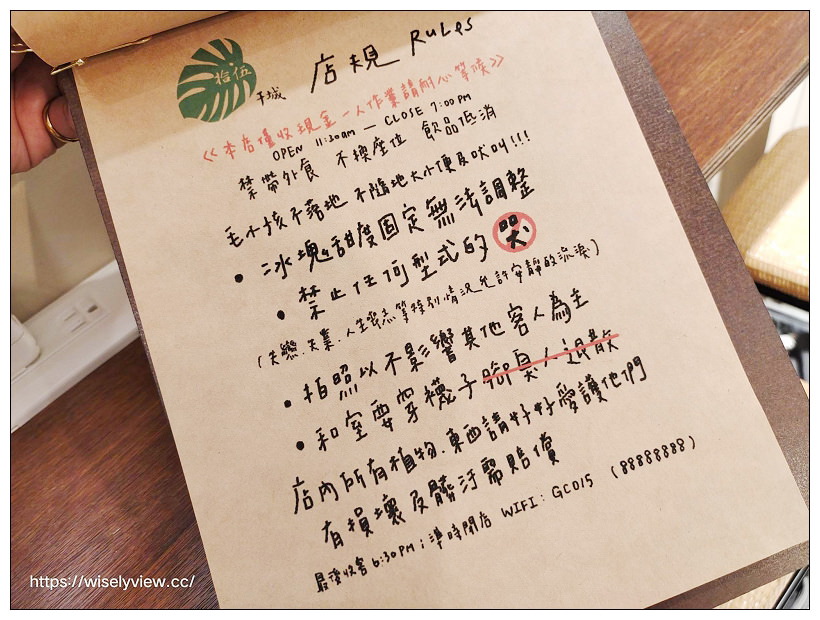 拾伍
羊城
店規 RULES
<<本店僅收現金一人作業請耐心等候>>
OPEN 11:30am — CLOSE 7:00PM
禁帶外食 不換座位 飲品低消
毛小孩不落地 不隨地大小便及吠叫!!!
• 冰塊甜度固定無法調整
• 禁止任何型式的哭
(失戀、失業、人生變焦等特別情況允許安靜的流淚)
• 拍照以不影響其他客人為主
• 和室要穿襪子腳臭人退散
店內所有植物、東西請好好愛護他們
有損壞及髒汙需賠償
最後收客 6:30PM ; 準時閉店 WIFI: GC015 (88888888)
https://wiselyview.cc/